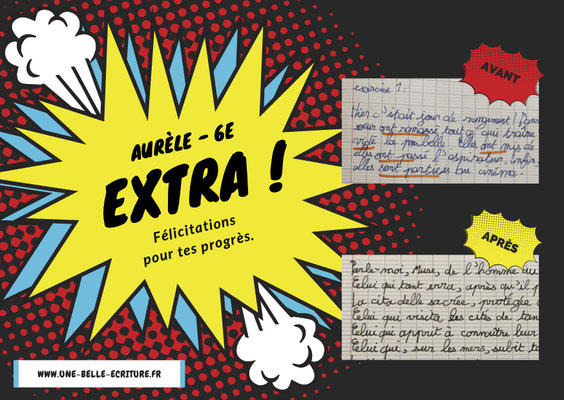 AURÈLE - 6E
EXTRA !
Félicitations
pour tes progrès.
WWW.UNE-BELLE-ECRITURE.FR
AVANT
exercice 1:
Hier c'était jour de rangement !
sœur ont ramassé tout ce qui traîne
vidé la poubelle. Elles ont mis de
elles ont passé l'aspirateur. Enfin
elles sont parties au cinéma.
APRÈS
Parle-moi, Muse, de l'homme
Celui qui tant erra, après qu'il
la citadelle sacrée, protégée
Celui qui visita les cités de tan
Celui qui apprit à connaître leur
Celui qui, sur les mers, subit